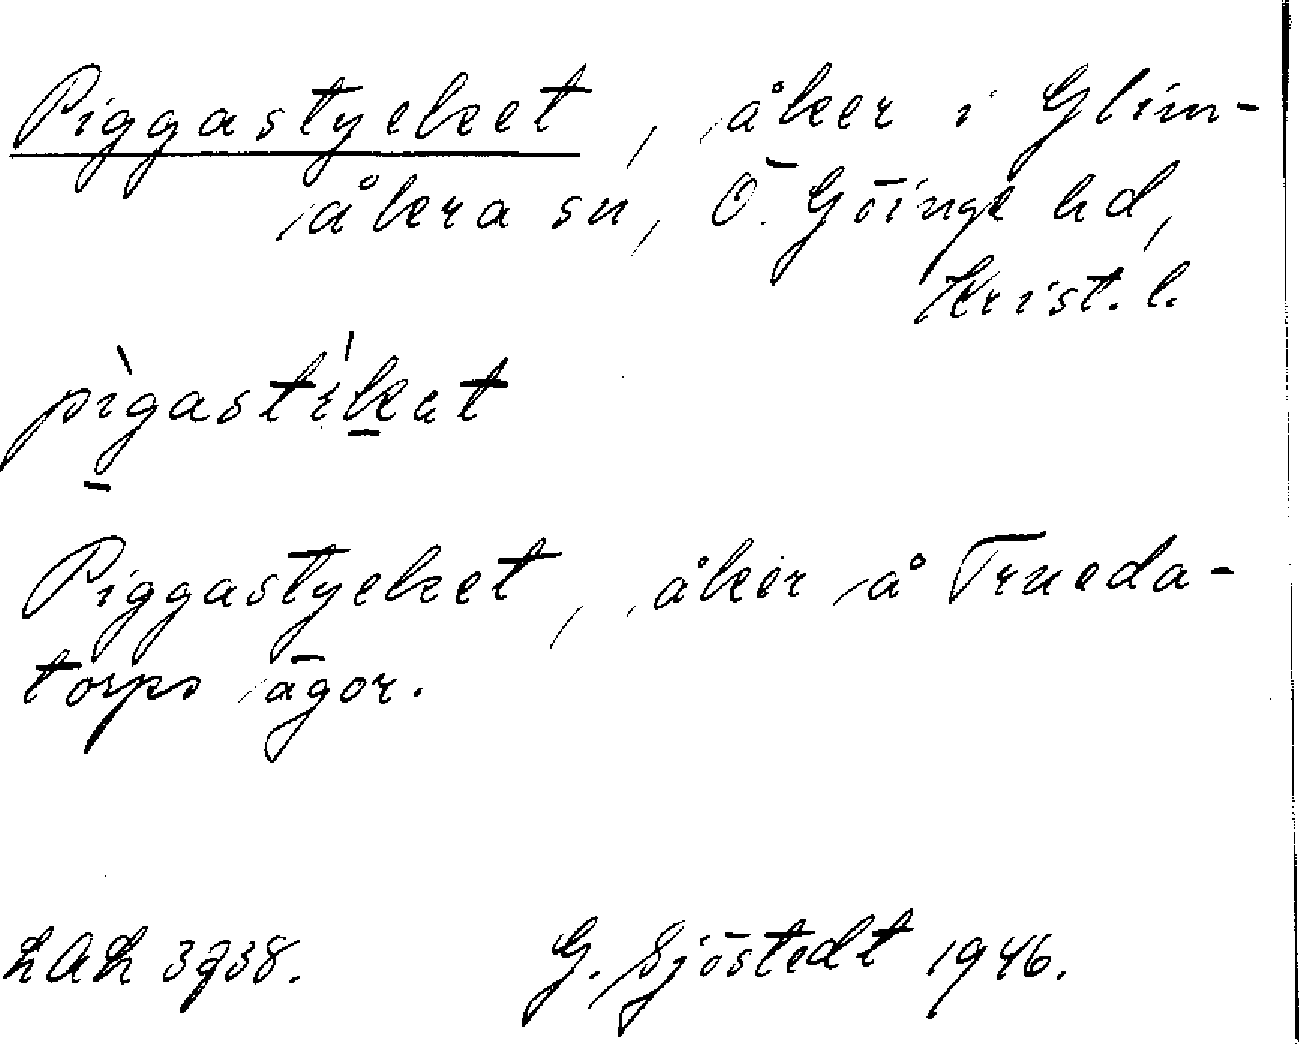 Piggastycket, åker i Glim-
åkra sn, Ö. Göinge hd,
Krist. l.
Piggastycket, åker å Trueda-
torps ägor.
LAL 3738. G. Sjöstedt 1946.